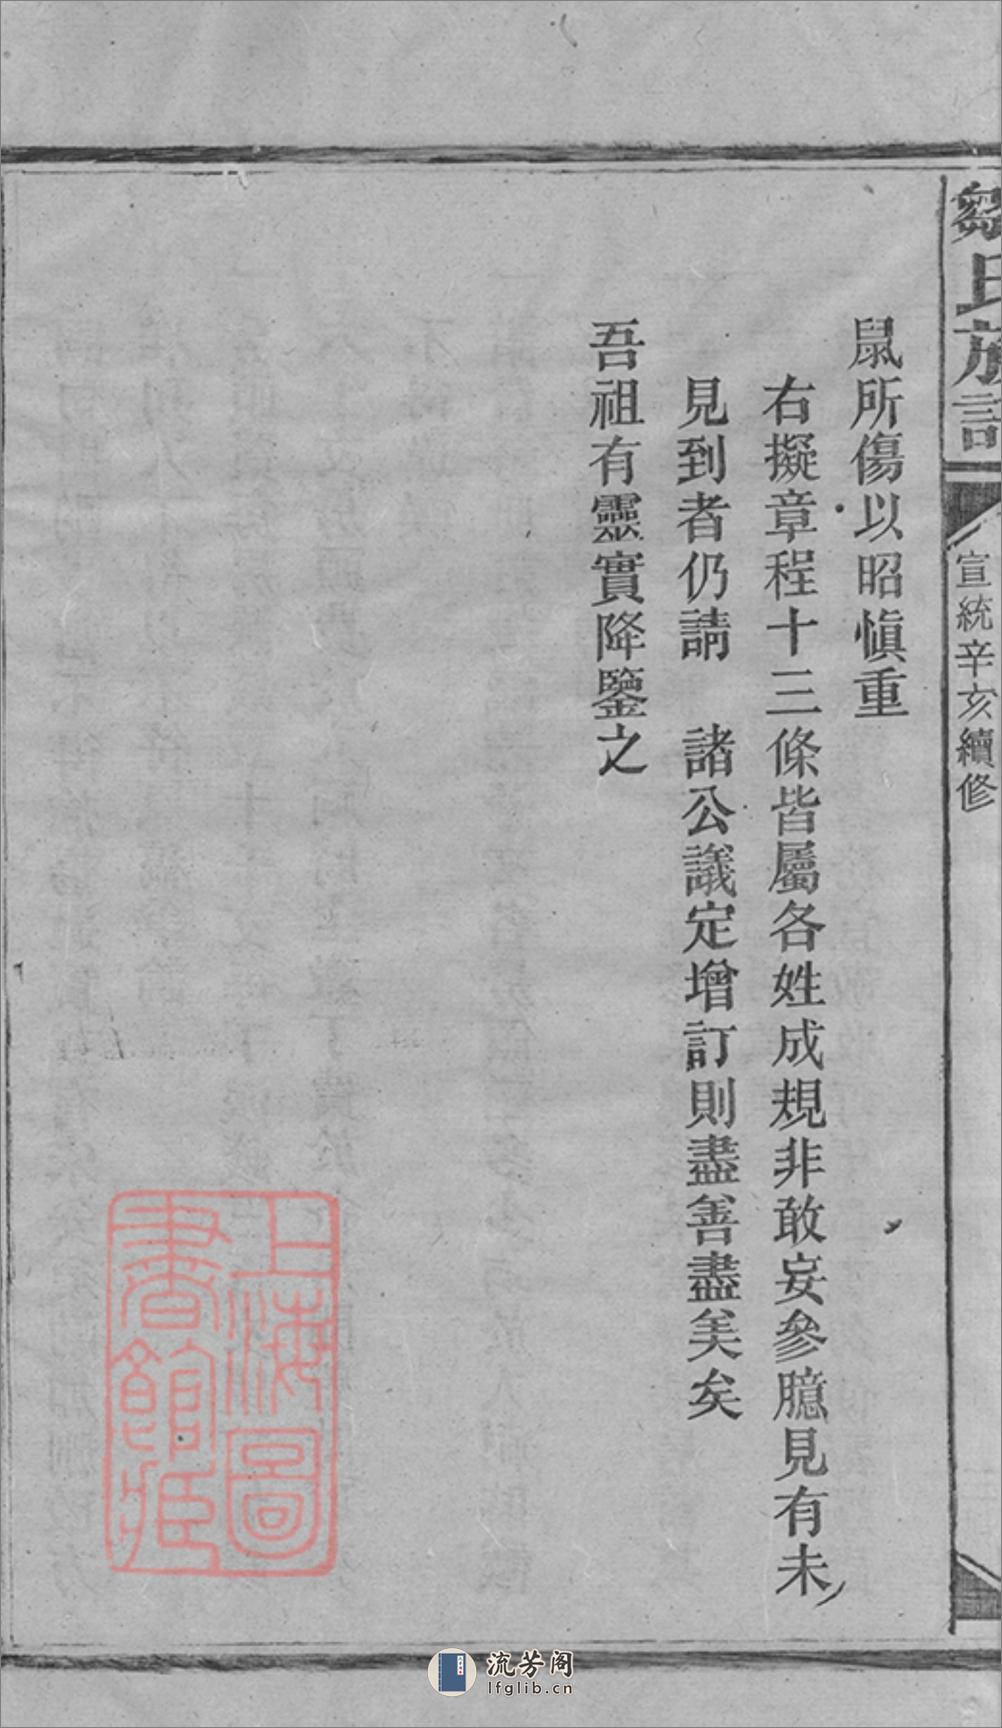 鄒氏族譜
宣統辛亥續修
鼠所傷以昭慎重
右擬章程十三條皆屬各姓成規非敢妄參臆見有未
見到者仍請 諸公議定增訂則盡善盡美矣
吾祖有靈實降鑒之
上海圖
書館藏
流芳阁
lfglib.cn